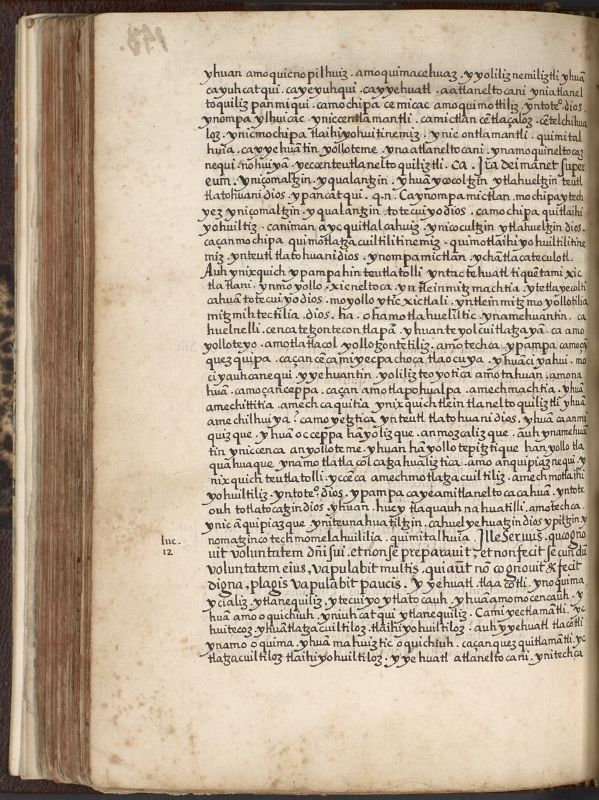 yhuan amo quicnopilhuiz. amo quimacehuaz. y yoliliz nemiliztli yhuā
ca yuhcatqui. ca yeyuhqui. ca yyehuatl. aatlaneltocani yn iatlanel
toquiliz pan miqui. camo chipa cemicac amo quimottiliz. yn toteo. dios.
ynompa ylhuicac. yniccentlamantli. ca mictlan cētlaçaloz. cētelchihua
loz. ynicmochipa tlaihiyohuitinemiz. ynic ontlamantli. quimital
huia. ca yyehuātin yolloteme. yn aatlaneltocani. yn amo quineltoca
nequi. nohuiyā. yeccenteutlaneltoquiliztli. ca. Ira dei manet super
eum. yniçomaltzin. yqualantzin. yhuā ycocoltzin ytlahueltzin teutl
tlatohuani dios. ypancatqui. q.n. Ca ynompa mictlan. mochipa ytech
yez yniçomaltzin. yqualantzin. totecuiyo dios. ca mochipa quitlaihi
yohuiltiz. caniman ayc quitlalcahuiz. ynicocultzin ytlahueltzin dios.
caçan mochipa quimotlatzacuiltilitinemiz. quimotlaihiyohuiltilitine
miz. yn teutl tlatohuani dios. ynompa mictlan. ychātlacatecolotl.
Auh ynixquich ypampa hin teutlatolli. yntac tehuatl tiquētami xic
tlatlani. ynmoyollo. xicneltoca. yntleinmitzmachtia. ytetlayecolti
cahuā totecuiyo dios. moyollo ytic xictlali. yntlein mitzmoyollotilia
mitzmihtectilia. dios. ha. ohamotlahueliltic. ynamehuantin. ca
huelnelli. cenca tetzontecontlapā. yhuan teyolcuitlatzayā. ca amo
yolloteyo. amotlatlacol yollotzontētiliz. amotechca. ypampa camoçā
quezquipa. caçan cēca miyecpa choca tlaocuya. yhuāciyahui. mo
ciyauhcanequi. yyehuantin. yoliliz teoyotica amotahuan. amona
huā. camoçan ceppa. caçan amotlapohualpa. amechmachtia. yhuā
amechittitia. amechcaquitia. ynixquich tlein tlaneltoquiliztli yhuā
amechilhuiya? camoyetztica yn teutl tlatohuani dios. yhuā caanmi
quizque. yhuā occeppa hanyolizque. anmozcalizque. auh ynamehuā
tin ynicenca anyolloteme. yhuan hanyollotepitztique hanyollotla
quahuaque. ynamotlatlacolcatzahualiztica. amo anquipiaznequi. y
nixquich teutlatolli. yccēca amechmotlatzacuiltiliz. amechmotlaihi
yohuiltiliz. yntoteo. dios. ypampa cayeamitlaneltocacahuā. yntote
ouh totlatocatzin dios. yhuan. huey tlaquauhnahuatilli. amotechca.
ynic anquipiazque yniteunahuatiltzin. cahuelyehuatzin dios ypiltzin y
nomatzinco techmomelahuililia. quimitalhuia. Ille seruus. qui cogno
uit voluntatem dñi sui. et non se preparauit, et non fecit secundū
voluntatem eius, vapulabit multis. qui aūt nō cognouit & fecit
digna, plagis vapulabit paucis. yyehuatl. tlacotli. ynoquima
ycializ. ytlanequiliz. ytecuiyo ytlatocauh. yhuā amomocencauh. y
huā amo oquichiuh. yniuhcatqui ytlanequiliz. Ca miyectlamātli. yc
huitecoz. yhuātlatzacuiltiloz. tlaihiyohuiltiloz. auh yyehuatl tlacotli
ynamo oquima. yhuāmahuiztic oquichiuh. caçanquezquitlamātli. yc
tlatzacuiltiloz tlaihiyohuiltiloz. yyehuatl atlaneltocani. ynitechca
luc.
12